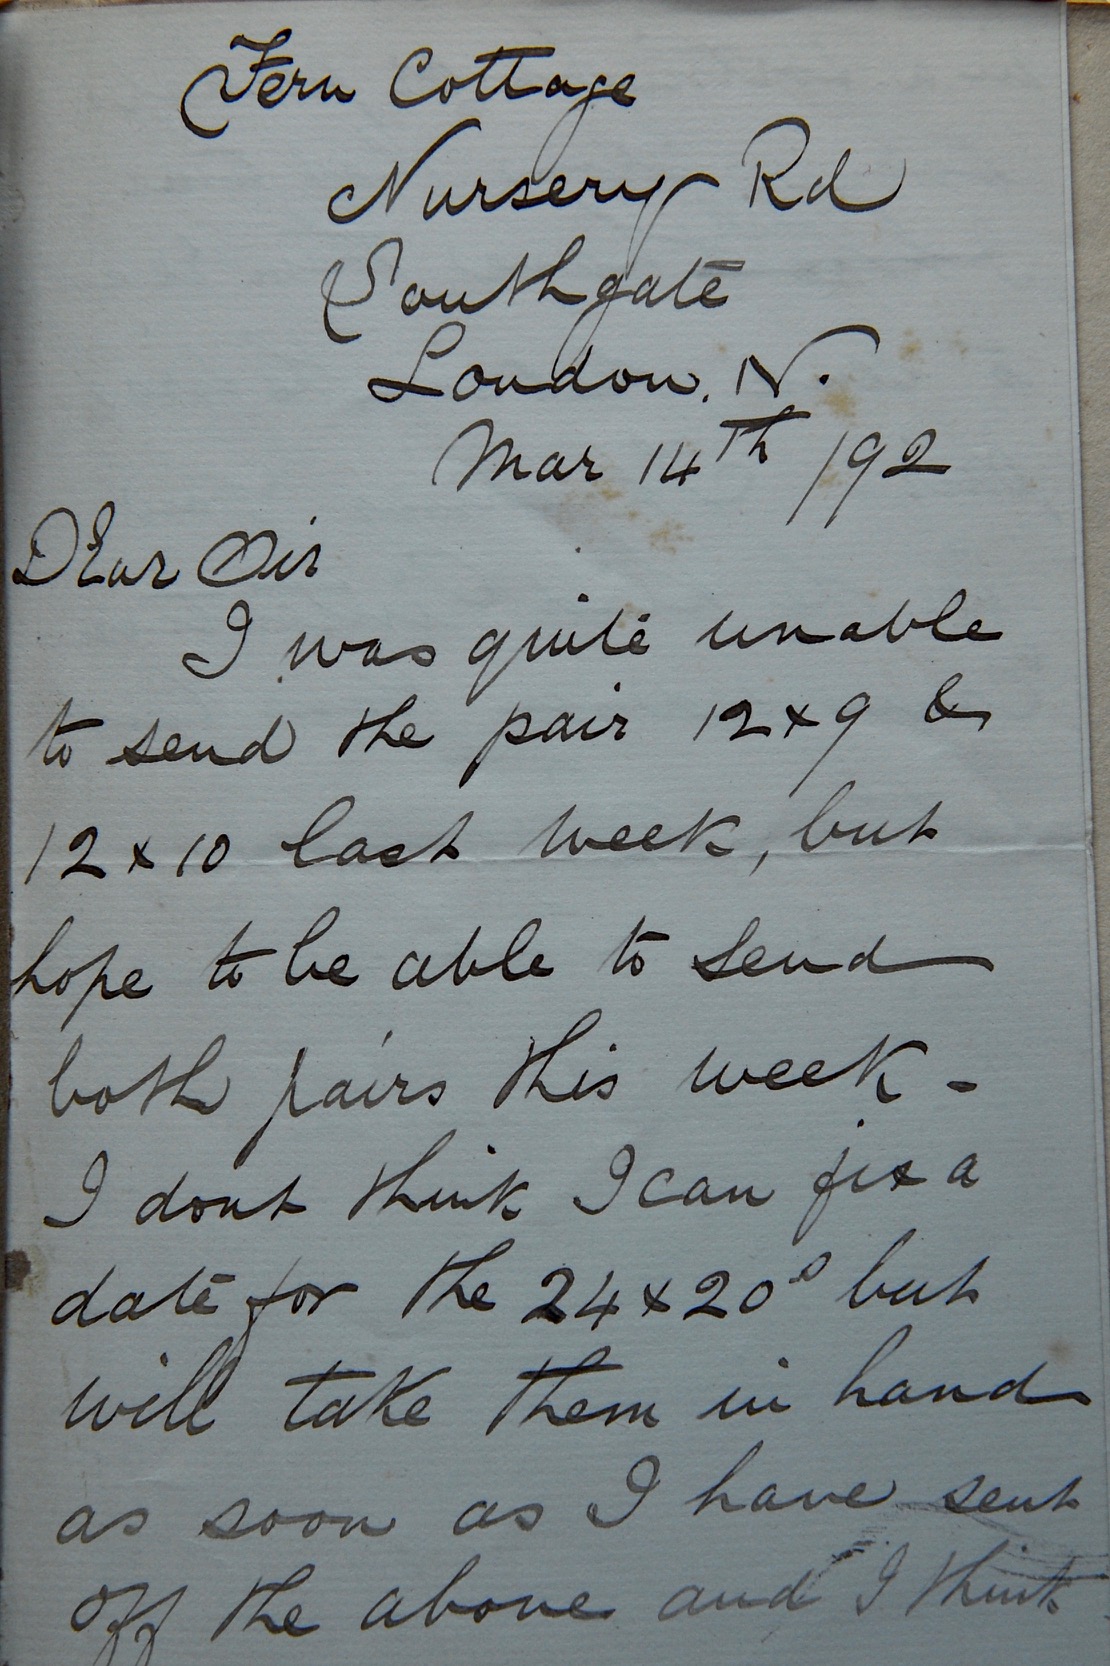 Fern Cottage
Nursery Rd
Southgate
London. N.
Mar 14th /92
DEar Sir
I was quite unable
to send the pair 12x9 &
12x10 last week, but
hope to be able to send
both pairs this week -
I dont think I can fix a
date for the 24x20s but
will take them in hand
as soon as I have sent
off the above and I think